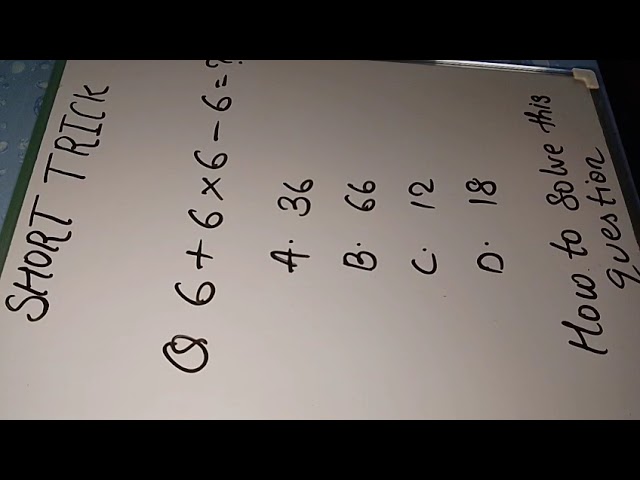 SHORT TRICK
Q 6+6×6-6=?
A. 36
B. 66
C. 12
D. 18
How to solve this
question